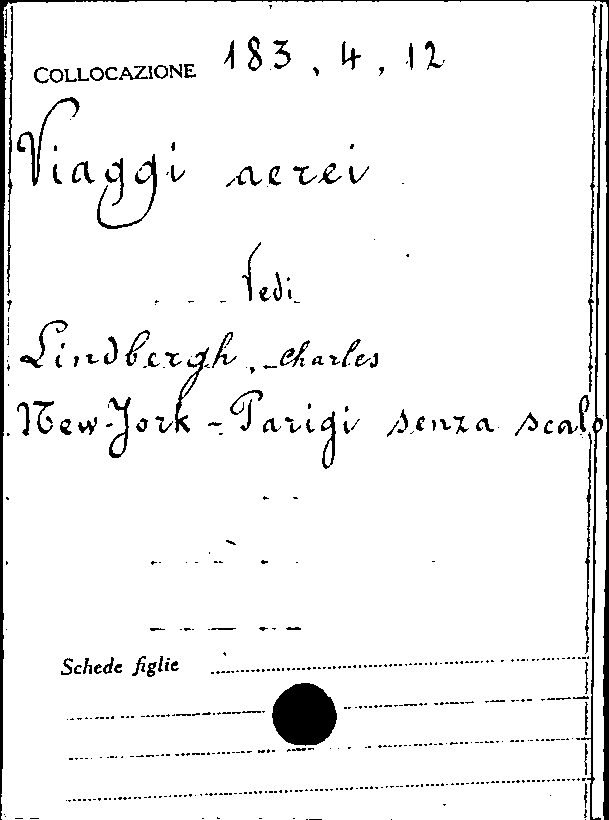 COLLOCAZIONE 183.4.12
Viaggi aerei
Vedi
Lindbergh, Charles
New-York - Parigi senza scalo
Schede figlie